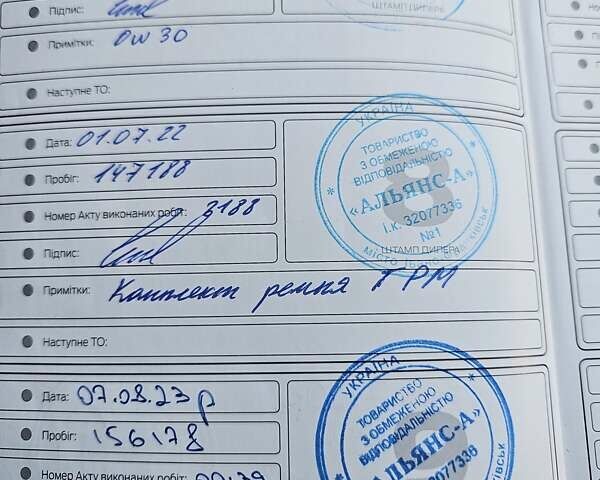 Підпис:
ШТАМП ДИЛЕРА
Примітки: OW 30
Наступне ТО:
Дата: 01.07.22
Пробіг: 147188
Номер Акту виконаних робіт: 3188
Підпис:
Примітки: Комплект ремня ГРМ
Наступне ТО:
УКРАЇНА
ТОВАРИСТВО
З ОБМЕЖЕНОЮ
ВІДПОВІДАЛЬНІСТЮ
«АЛЬЯНС-А»
і.к. 32077336
№1
ШТАМП ДИЛЕРА
МІСТО
Дата: 07.08.23р
Пробіг: 156178
Номер Акту виконаних робіт:
УКРАЇНА
ТОВАРИСТВО
З ОБМЕЖЕНОЮ
ВІДПОВІДАЛЬНІСТЮ
«АЛЬЯНС-А»
32077336